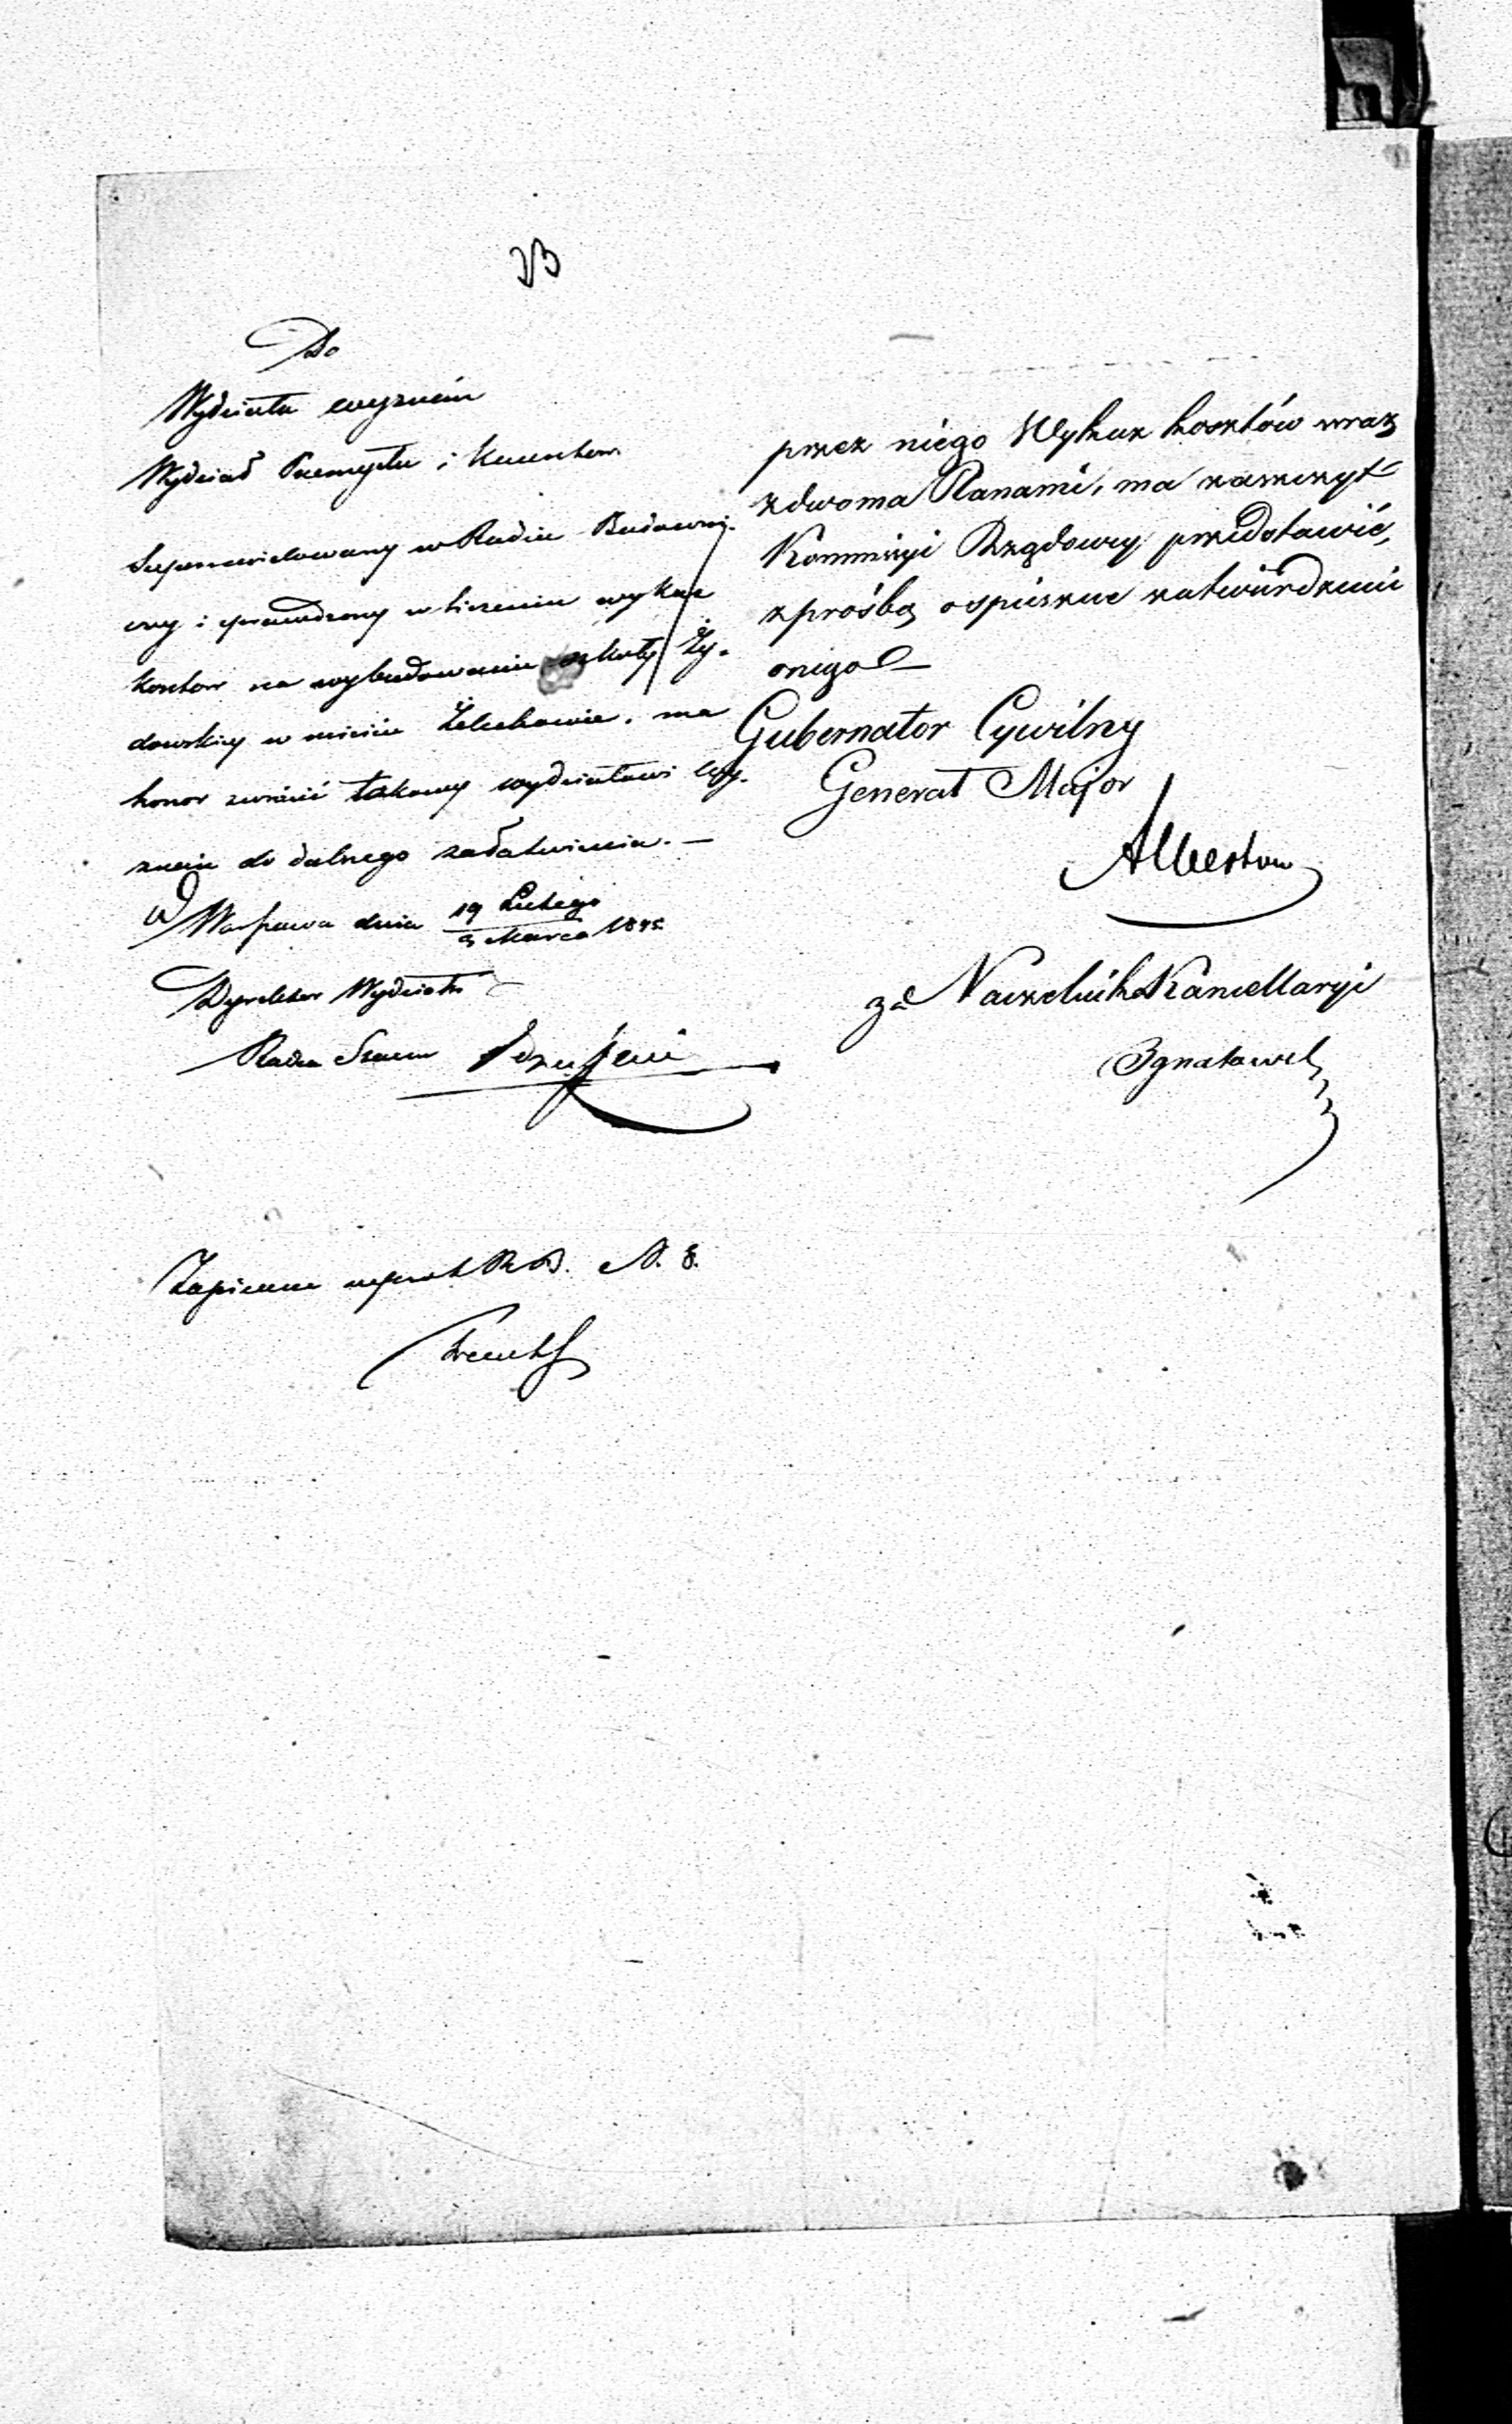 Do
Wydziału wyznań
Wydział Przemysłu i Kunsztów
Superrewidowany w Radzie Budowni-
czy i sprawdzony w liczeniu wykaz
kosztow na wybudowanie szkoły Ży-
dowskiy w mieście Żelechowie. ma
honor zwrócić takowy wydziałowi wy-
znań do dalszego załatwienia. —
W Warszawa dnia 19 Lutego
3 Marca 1845
Dyrektor Wydziału
Radca Stanu
Zapisano R. B. N. 8.
przez niego Wykaz kosztów wraz
z dwoma Planami, ma zaszczyt
Kommisyi Rządowey przedstawić,
z prośbą o spieszne zatwierdzenie
onego —
Gubernator Cywilny
Generał Major
Albertow
za Naczelnika Kancellaryi
Ignatowicz